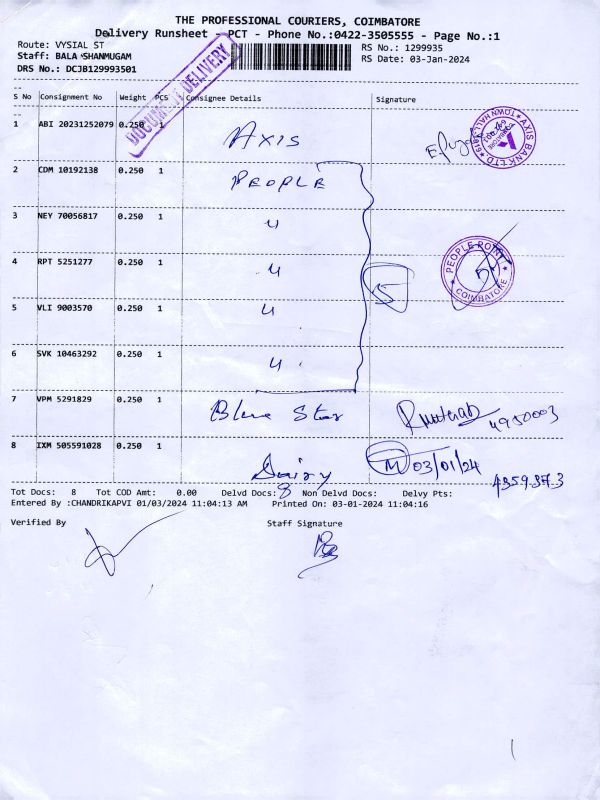 THE PROFESSIONAL COURIERS, COIMBATORE
Delivery Runsheet - PCT - Phone No.:0422-3505555 - Page No.:1
Route: VYSIAL ST
RS No.: 1299935
Staff: BALA SHANMUGAM
RS Date: 03-Jan-2024
DRS No.: DCJB129993501
DOCUMENT DELIVERY
S No Consignment No Weight PCS Consignee Details Signature
1 ABI 20231252079 0.250 1 AXIS
AXIS BANK LTD. TOWN HALL
2 CDM 10192138 0.250 1 PEOPLE
3 NEY 70056817 0.250 1 u
4 RPT 5251277 0.250 1 u 5
PEOPLE POINT COIMBATORE
5 VLI 9003570 0.250 1 u
6 SVK 10463292 0.250 1 u
7 VPM 5291829 0.250 1 Blue Star 4950003
8 IXM 505591028 0.250 1 M 03/01/24
Tot Docs: 8 Tot COD Amt: 0.00 Delvd Docs: 8 Non Delvd Docs: Delvy Pts:
Entered By :CHANDRIKAPVI 01/03/2024 11:04:13 AM Printed On: 03-01-2024 11:04:16
Verified By Staff Signature